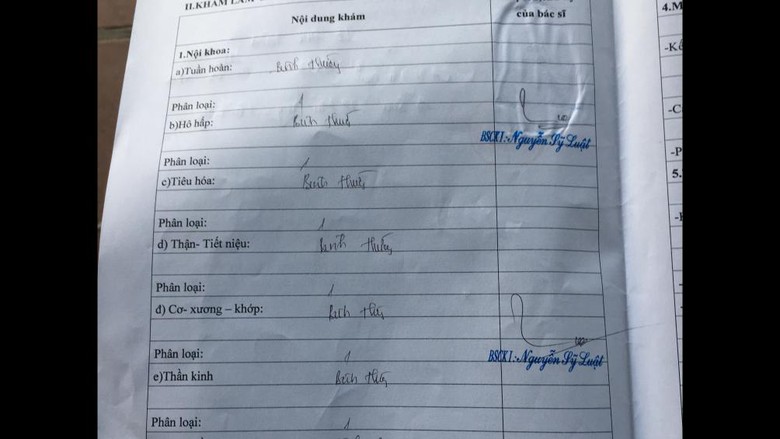 II.KHÁM LÂM
Nội dung khám
của bác sĩ
1.Nội khoa:
a)Tuần hoàn: Bình thường
Phân loại: 1
b)Hô hấp: Bình thường
BSCKI:-Nguyễn Sỹ Luật
Phân loại: 1
c)Tiêu hóa: Bình thường
Phân loại: 1
d) Thận- Tiết niệu: Bình thường
Phân loại: 1
đ) Cơ- xương – khớp: Bình thường
Phân loại: 1
BSCKI:-Nguyễn Sỹ Luật
e)Thần kinh Bình thường
Phân loại: 1
4.M
-Kế
-C
-P
5.